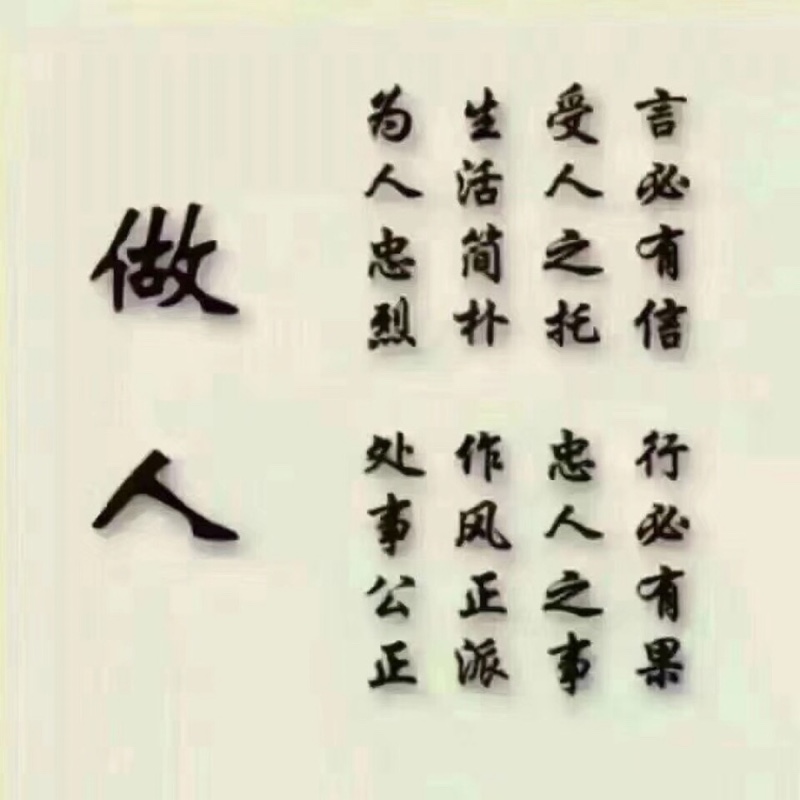 做人
为人忠烈
处事公正
生活简朴
作风正派
受人之托
忠人之事
言必有信
行必有果